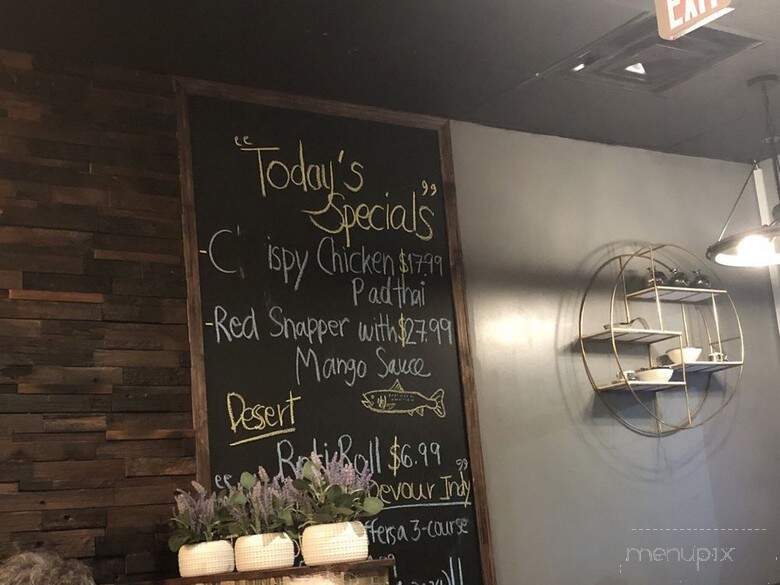 EXIT
"Today's
Specials"
-C ispy Chicken $17.99
Padthai
-Red Snapper with $27.99
Mango Sauce
Desert
Roti Roll $6.99
" Devour Indy"
ffers a 3-course
menupix